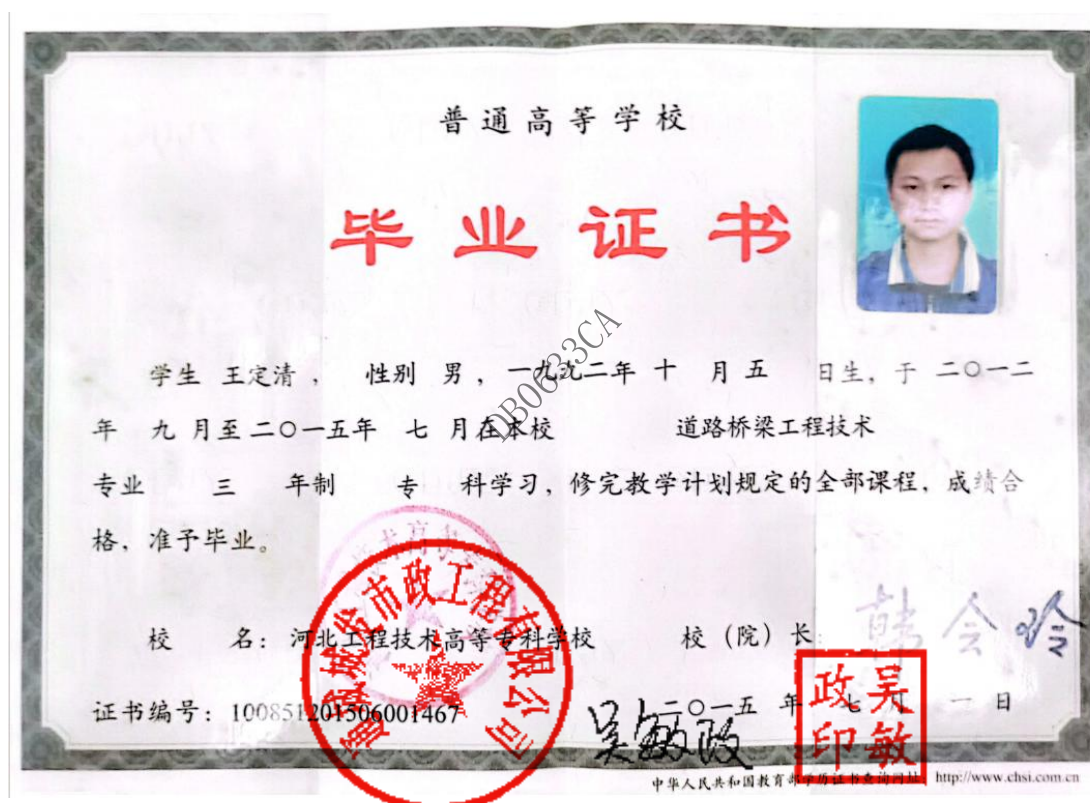 普通高等学校
毕业证书
学生 王定清 ， 性别 男 ，一九九二年 十 月 五 日生，于 二〇一二
年 九 月至 二〇一五年 七 月在本校 道路桥梁工程技术
专业 三 年制 专 科学习，修完教学计划规定的全部课程，成绩合
格，准予毕业。
DB0633CA
校 名：河北工程技术高等专科学校 校（院）长：韩会玲
证书编号：100851201506001467 二〇一五 年 七 月 一 日
城发市政工程有限公司
吴敏政
吴敏政印
中华人民共和国教育部学历证书查询网址 http://www.chsi.com.cn